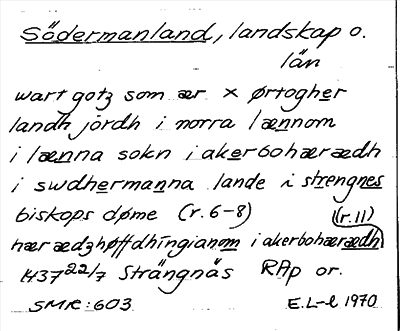 Södermanland, landskap o.
län
wart gotz som ær x ørtogher
landh jördh i norra lænnom
i lænna sokn i akerbohæræædh
i swdhermanna lande i strengnes
biskops døme (r. 6-8) (r. 11)
hæræædzhøffdhingianom i akerbohæræædh
1437 22/7 Strängnäs RAp or.
SMR: 603 E.L-l 1970